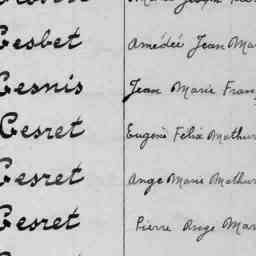 Gesbet Amédée Jean Mar
Gesnis Jean Marie Franç
Gesret Eugène Félix Mathur
Gesret Ange Marie Mathur
Gesret Pierre Ange Mar